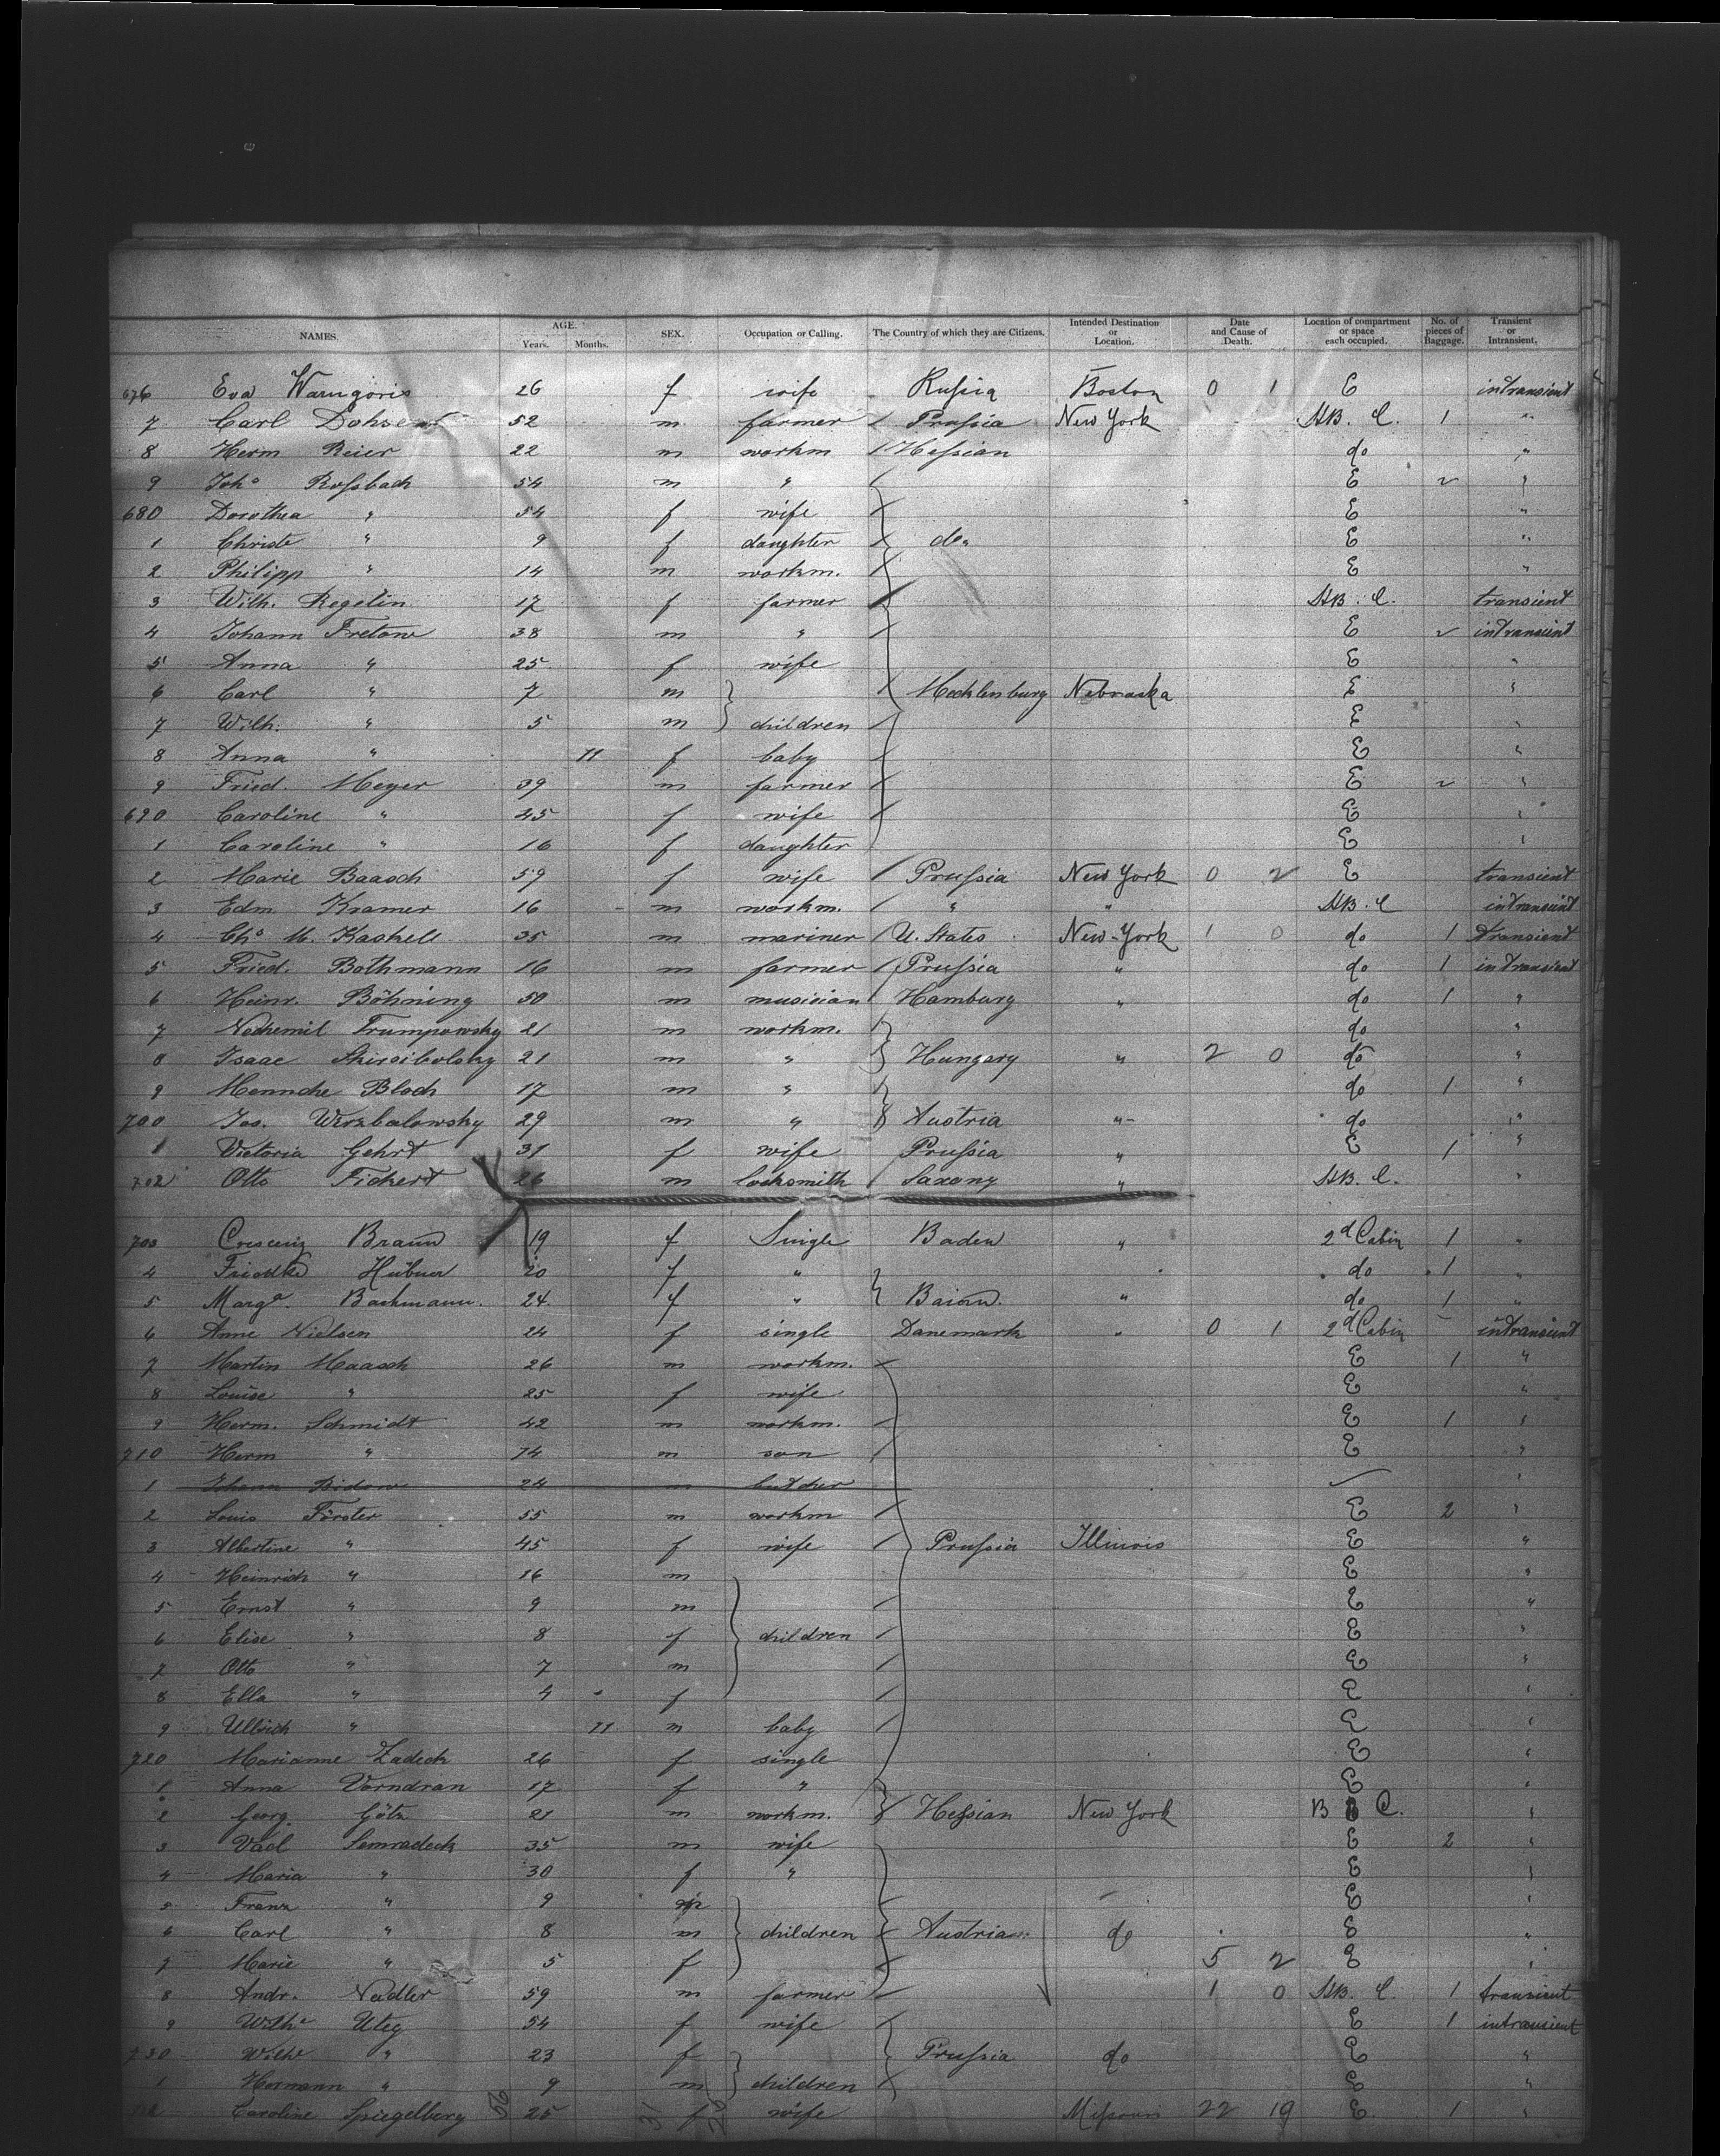 NAMES. AGE. Years. Months. SEX. Occupation or Calling. The Country of which they are Citizens. Intended Destination or Location. Date and Cause of Death. Location of compartment or space each occupied. No. of pieces of Baggage. Transient or Intransient.
676 Eva Warngoris 26 f wife Russia Boston 0 1 E intransient
7 Carl Dohse 52 m farmer / Prussia New York HB. C. 1 "
8 Herm Reier 22 m workm / Hessian do "
9 Joh° Rossbach 54 m " / E 2 "
680 Dorothea " 54 f wife / E "
1 Christe " 9 f daughter / do. E "
2 Philipp " 14 m workm. / E "
3 Wilh. Regelin 17 f farmer / HB. C. transient
4 Johann Fretow 38 m " / E 2 intransient
5 Anna " 25 f wife E "
6 Carl " 7 m / Mecklenburg Nebraska E "
7 Wilh. " 5 m children / E "
8 Anna " 11 f baby / E "
9 Fried. Meyer 39 m farmer / E 2 "
690 Caroline " 45 f wife / E "
1 Caroline " 16 f daughter E "
2 Marie Baasch 59 f wife / Prussia New York 0 2 E transient
3 Edm. Kramer 16 m workm. / " " HB. C intransient
4 Ch° M. Kaskell 35 m mariner / U. States New-York 1 0 do 1 transient
5 Fried. Bothmann 16 m farmer / Prussia " do 1 intransient
6 Heinr. Böhning 50 m musician / Hamburg " do 1 "
7 Nochemil Trumpowsky 21 m workm. / do "
8 Isaac 21 m " Hungary " 2 0 do "
9 Mennche Bloch 17 m " / do 1 "
700 Jos. Wirzbalowsky 29 m " / Austria " do "
1 Victoria Gehrt 31 f wife Prussia " E 1 "
702 Otto Fickert 26 m locksmith / Saxony " HB. C. "
703 Crescenz Braun 19 f Single Baden " 2d Cabin 1 "
4 Hübner 20 f " do 1 "
5 Marga. Bachmann. 24 f " Baiern. " do 1 "
6 Anne Nielsen 24 f single Danemark " 0 1 2d Cabin intransient
7 Martin Maasch 26 m workm. / E 1 "
8 Louise " 25 f wife E "
9 Herm. Schmidt 42 m workm. / E 1 "
710 Herm " 14 m son / E "
1 Johann Bidow 24 m butcher "
2 Louis Förster 55 m workm / E 2 "
3 Albertine " 45 f wife / Prussia Illinois E "
4 Heinrich " 16 m E "
5 Ernst " 9 m / E "
6 Elise " 8 f children / E "
7 Otto " 7 m / E "
8 Ella " 4 f / E "
9 Ullrich " 11 m baby / E "
720 Marianne Zadeck 26 f single E "
1 Anna Vorndran 17 f " E "
2 Georg Götz 21 m workm. / Hessian New York B C. "
3 Semradeck 35 m wife E 2 "
4 Maria " 30 f " E "
5 Franz " 9 m / E "
6 Carl " 8 m children / Austrian do E "
7 Marie " 5 f / 5 2 E "
8 Andr. Nadler 59 m farmer / 1 0 HB. C. 1 transient
9 Wilhe Uteg 54 f wife / E 1 intransient
730 Wilhe " 23 f Prussia do E "
1 Hermann " 9 m children / E "
Caroline Spiegelberg 25 f wife Missouri 22 19 E 1 "